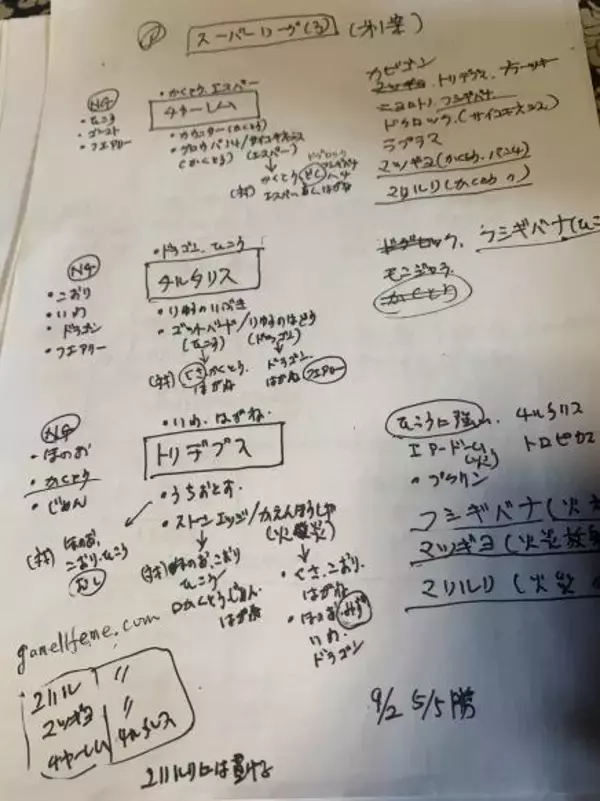 スーパーリーグ(3) (才1案)
NG
・ひこう
・ゴースト
・フェアリー
・かくとう.エスパー
チャーレム
・カウンター(かくとう)
・グロウパンチ/サイコキネシス
(かくとう) (エスパー)
カビゴン
マッギョ、トリデプス、
ニョロトノ、フシギバナ
ドククロック、(サイコキネシス)
ラプラス
マッギョ(かくとう・パンチ)
マリルリ(かくとう〃)
NG
・こおり
・いわ
・ドラゴン
・フェアリー
・ドラゴン、ひこう
チルタリス
・りゅうのいぶき
・ゴッドバード/りゅうのはどう
(ひこう) (ドラゴン)
(対) くさ かくとう.
ドラゴン
はがね フェアリー
ドクロック、フシギバナ(ひこ
モジャンボ
かくとう
NG
・ほのお
・かくとう
・じめん
・いわ、はがね.
トリデプス
・うちおとす.
・ストーンエッジ/かえんほうしゃ
(対) ほのお.
こおり.ひこう
むし
(対) ほのお、こおり
ひこう
かくとう、じめん.
はがね
・くさ、こおり.
はがね
・ほのお みず
いわ
ドラゴン
ひこうに強い. チルタリス
エアームド トロピウス
フシギバナ(火
マッギョ(火炎放
マリルリ(火炎
マリルリ 〃
マッギョ 〃
チャーレム チルタリス
マリルリには
9/2 5/5勝